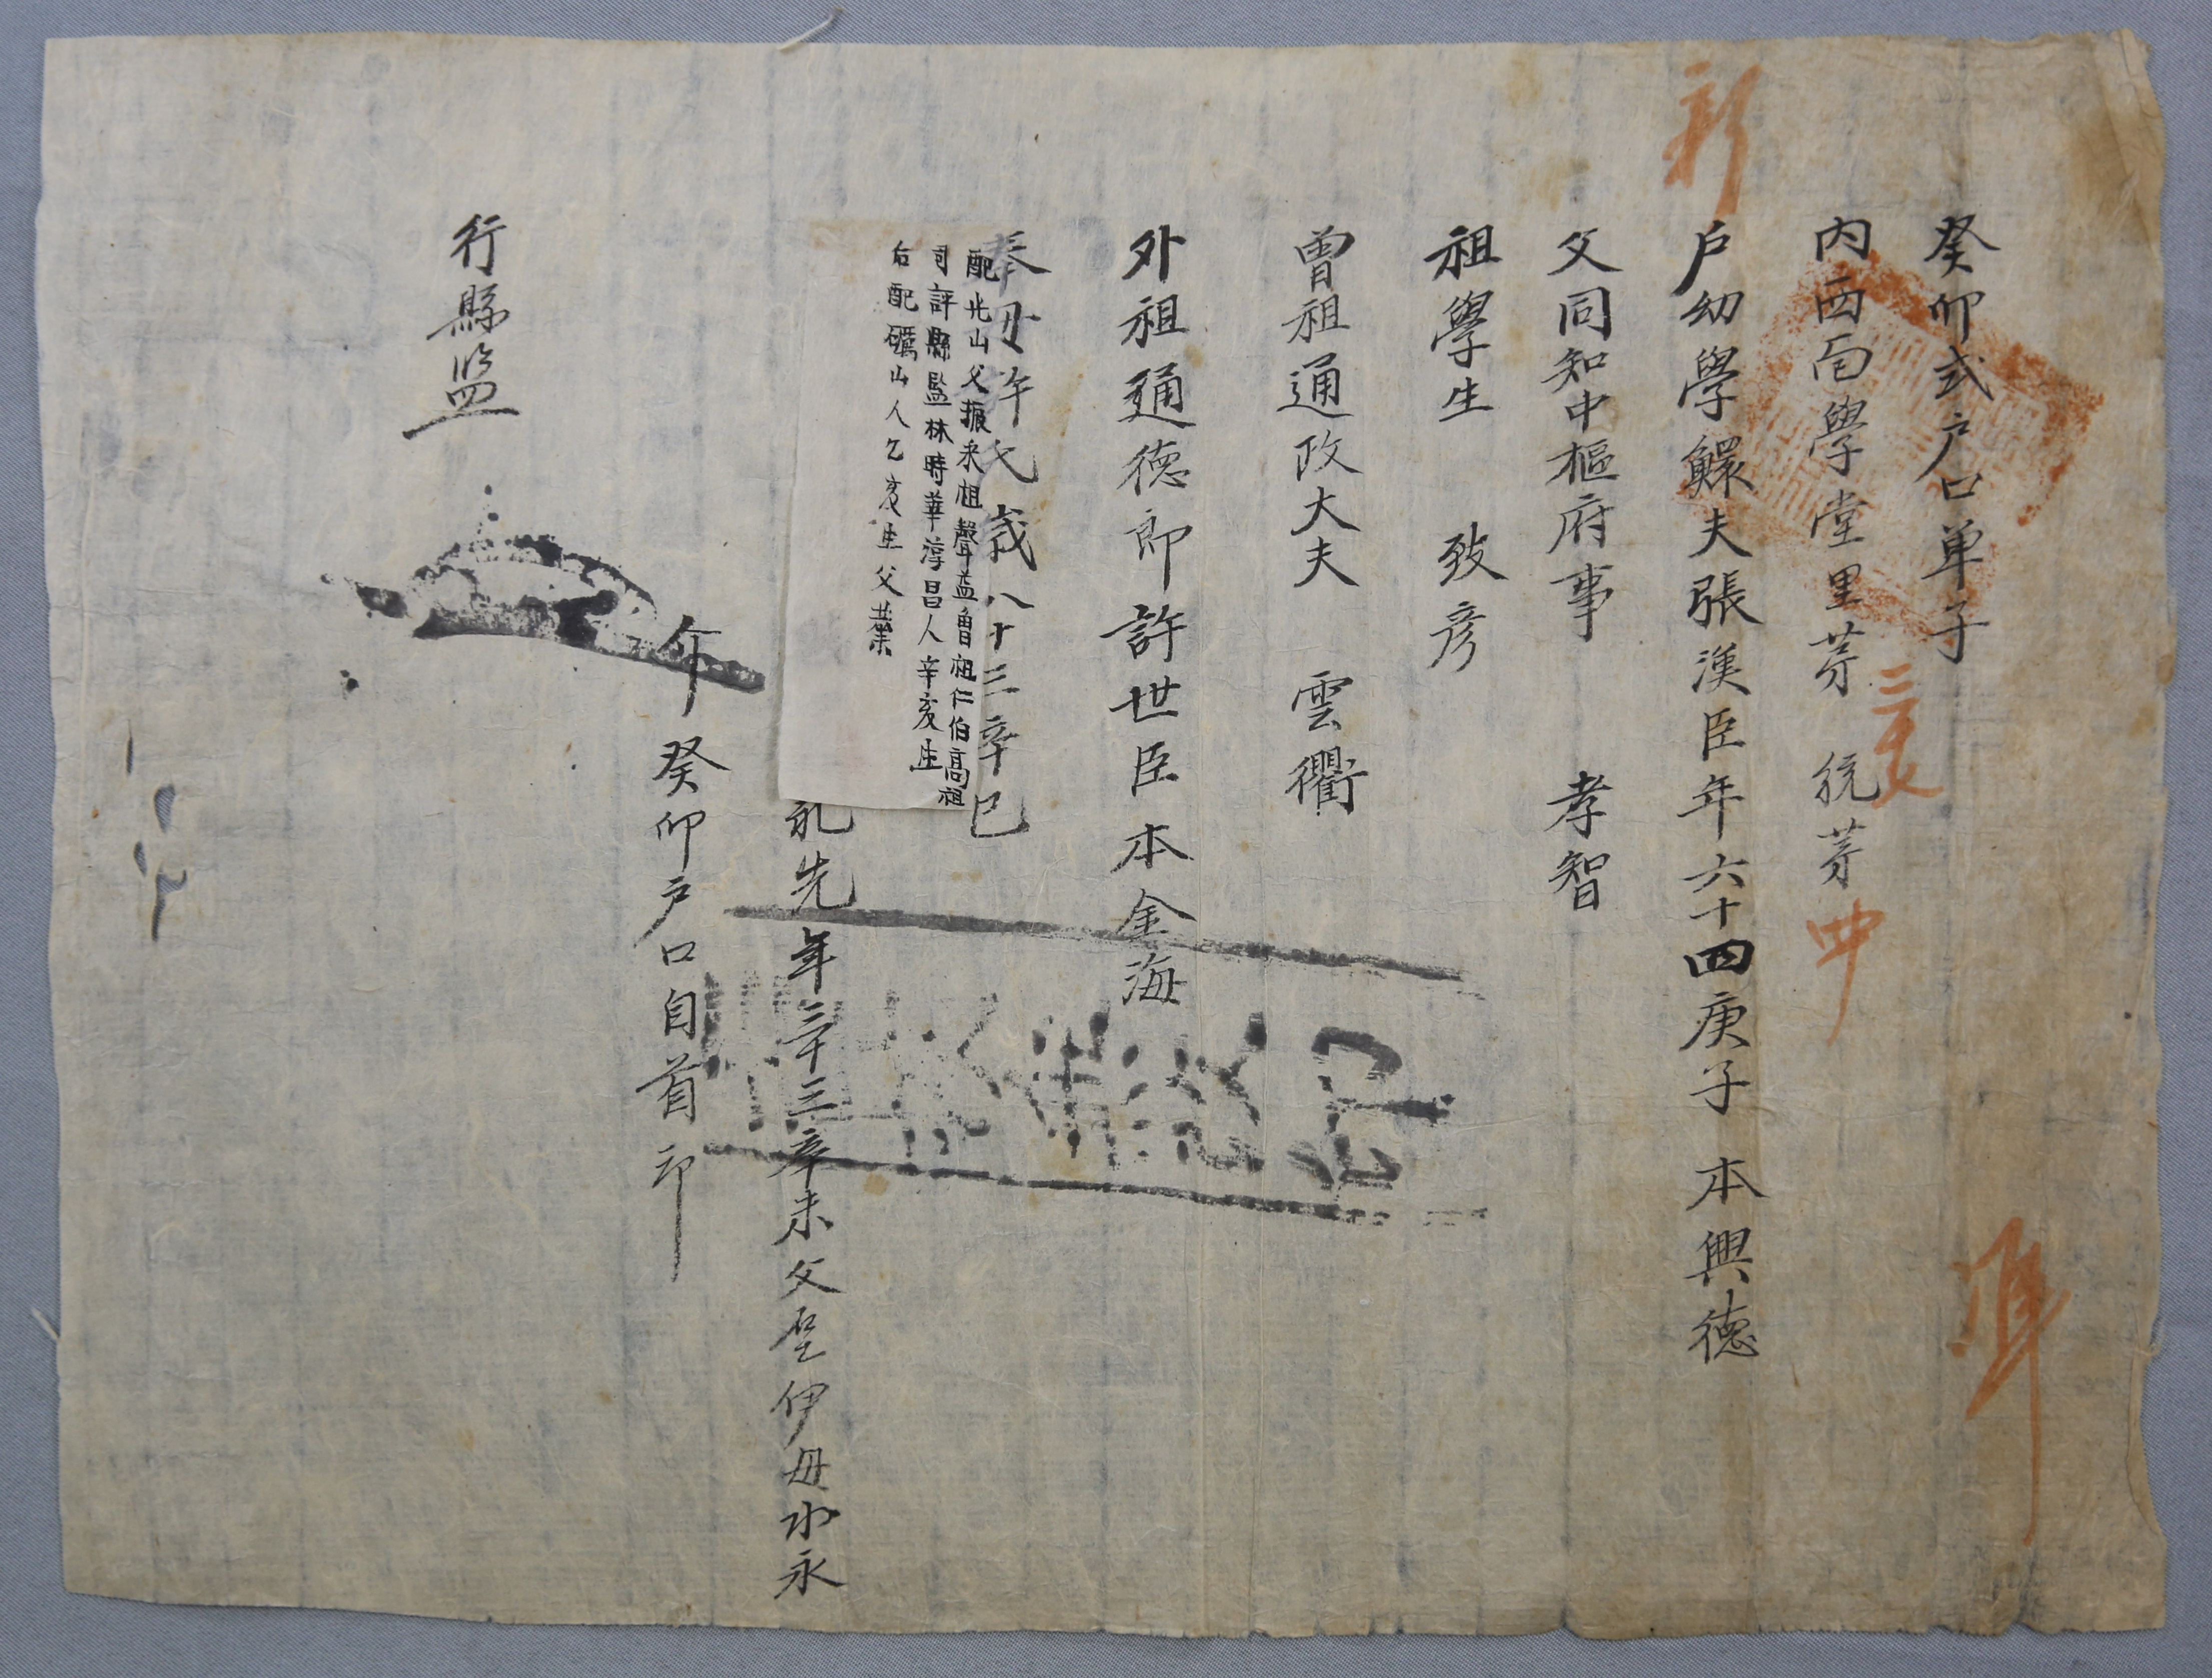 癸卯式戶口单子
內西面學堂里苐 統苐
三
戶幼學鰥夫張漢臣年六十四庚子 本興德
父同知中樞府事 孝智
祖學生 致彦
曾祖通政大夫 雲衢
外祖通德郎許世臣本金海
奉母許氏歲八十三辛巳
配光山父振來祖聲益曾祖仁伯高祖
司評縣監林時華淳昌人辛亥生
右配礪山人乙亥生父葉
礼先年三十三辛未父 伊母水永
癸卯戶口自首印
行縣监
準